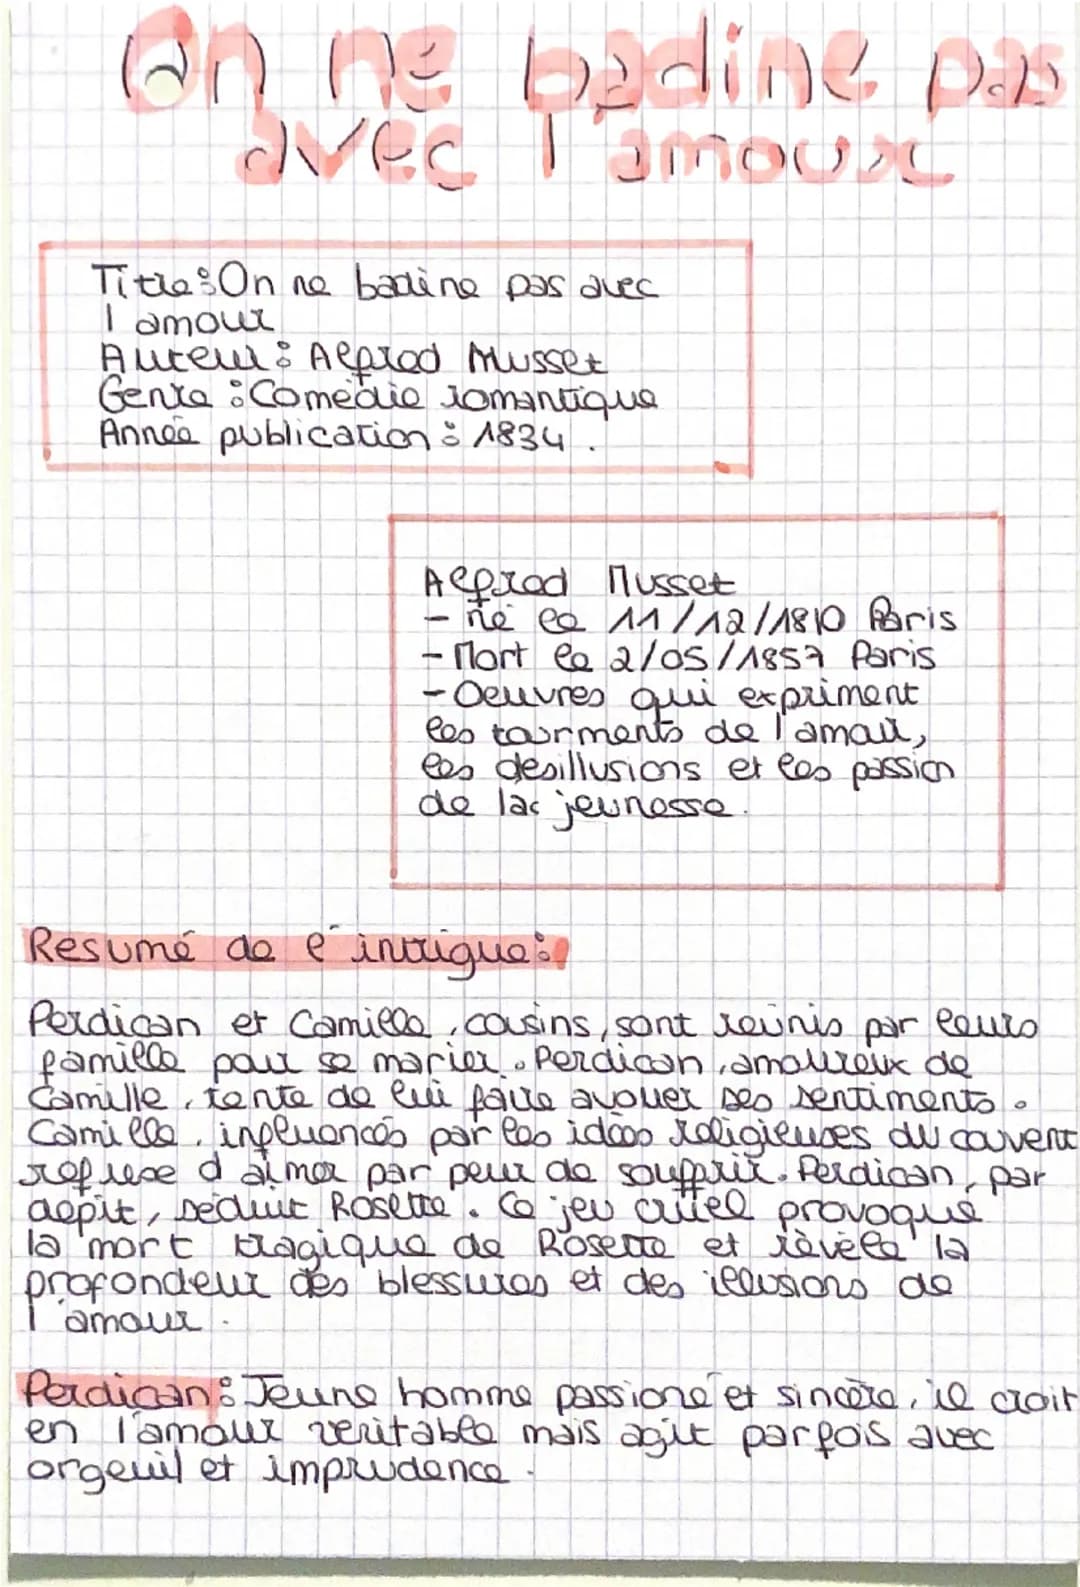 On ne badine pas
avec l'amour
Titre : On ne badine pas avec
l'amour
Auteur : Alfred Musset
Genre : Comédie romantique
Année publication : 1834.
Alfred Musset
- né le 11/12/1810 Paris
- Mort le 2/05/1857 Paris
- Oeuvres qui expriment
les tourments de l'amour,
les desillusions et les passion
de la jeunesse.
Resumé de l'intrigue :
Perdican et Camille, cousins, sont réunis par leurs
famille pour se marier. Perdican, amoureux de
Camille, tente de lui faire avouer ses sentiments.
Camille, influencés par les idées religieuses du couvent
refuse d'aimer par peur de souffrir. Perdican, par
depit, séduit Rosette. Ce jeu cruel provoque
la mort tragique de Rosette et révèle la
profondeur des blessures et des illusions de
l'amour.
Perdican : Jeune homme passioné et sincère, il croit
en l'amour veritable mais agit parfois avec
orgeuil et imprudence.